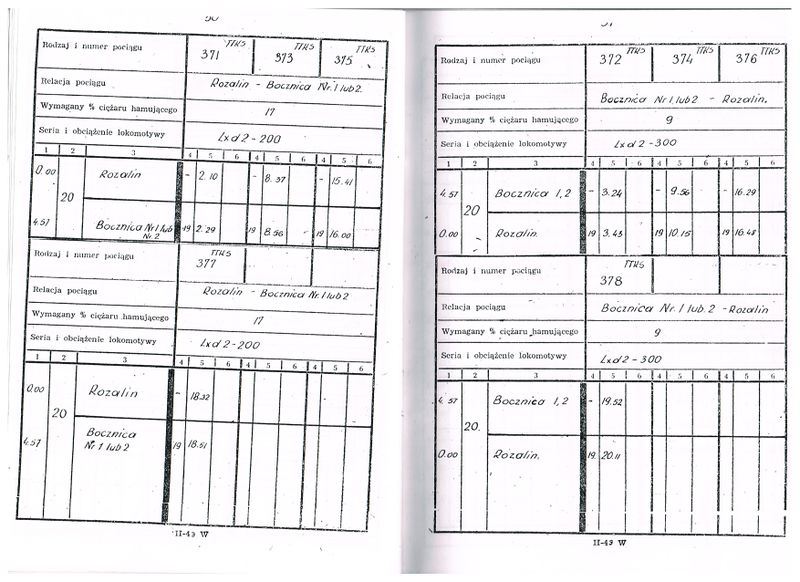 50
Rodzaj i numer pociągu TTKS 371 TTKS 973 TTKS 375
Relacja pociągu Rozalin - Bocznica Nr. 1 lub 2.
Wymagany % ciężaru hamującego 17
Seria i obciążenie lokomotywy Lxd2-200
1 2 3 4 5 6 4 5 6 4 5 6
0.00 20 Rozalin - 2.10 - 8.37 - 15.41
4.57 Bocznica Nr1 lub Nr.2 19 2.29 19 8.56 19 16.00
Rodzaj i numer pociągu TTKS 377
Relacja pociągu Rozalin - Bocznica Nr. 1 lub 2
Wymagany % ciężaru hamującego 17
Seria i obciążenie lokomotywy Lxd2-200
1 2 3 4 5 6 4 5 6 4 5 6
0.00 20 Rozalin - 18.32
4.57 Bocznica Nr 1 lub 2 19 18.51
II-43 W
Rodzaj i numer pociągu TTKS 372 TTKS 374 TTKS 376
Relacja pociągu Bocznica Nr 1, lub 2 - Rozalin.
Wymagany % ciężaru hamującego 9
Seria i obciążenie lokomotywy Lxd2-300
1 2 3 4 5 6 4 5 6 4 5 6
4.57 20 Bocznica 1,2 - 3.24 - 9.56 - 16.29
0.00 Rozalin. 19 3.43 19 10.15 19 16.48
Rodzaj i numer pociągu TTKS 378
Relacja pociągu Bocznica Nr. 1 lub 2 - Rozalin
Wymagany % ciężaru hamującego 9
Seria i obciążenie lokomotywy Lxd2-300
1 2 3 4 5 6 4 5 6 4 5 6
4.57 20. Bocznica 1,2 - 19.52
0.00 Rozalin. 19 20.11
II-43 W